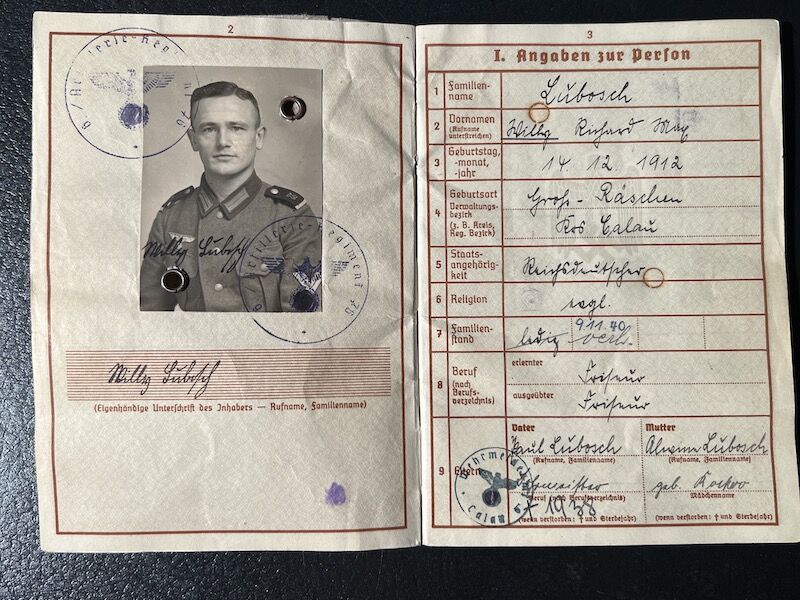 2
Artillerie-Regiment 78
Willy Lubosch
Artillerie-Regiment 78
Willy Lubosch
(Eigenhändige Unterschrift des Inhabers — Rufname, Familienname)
3
I. Angaben zur Person
1 Familien-
name
Lubosch
2 Vornamen
(Rufname
unterstreichen)
Willy Richard Max
3 Geburtstag,
-monat,
-jahr
14. 12. 1912
4 Geburtsort
Verwaltungs-
bezirk
(z. B. Kreis,
Reg. Bezirk)
Groß-Räschen
Krs Calau
5 Staats-
angehörig-
keit
Reichsdeutscher
6 Religion
evgl.
7 Familien-
stand
ledig
9.11.40
verh.
8 Beruf
(nach
Berufs-
verzeichnis)
erlernter
Friseur
ausgeübter
Friseur
9 Eltern
Vater
Paul Lubosch
(Rufname, Familienname)
Beruf (nach Berufsverzeichnis)
† 1938
(wenn verstorben: † und Sterbejahr)
Mutter
Lubosch
(Rufname, Familienname)
geb.
Mädchenname
(wenn verstorben: † und Sterbejahr)
Wehrmeldeamt
Calau